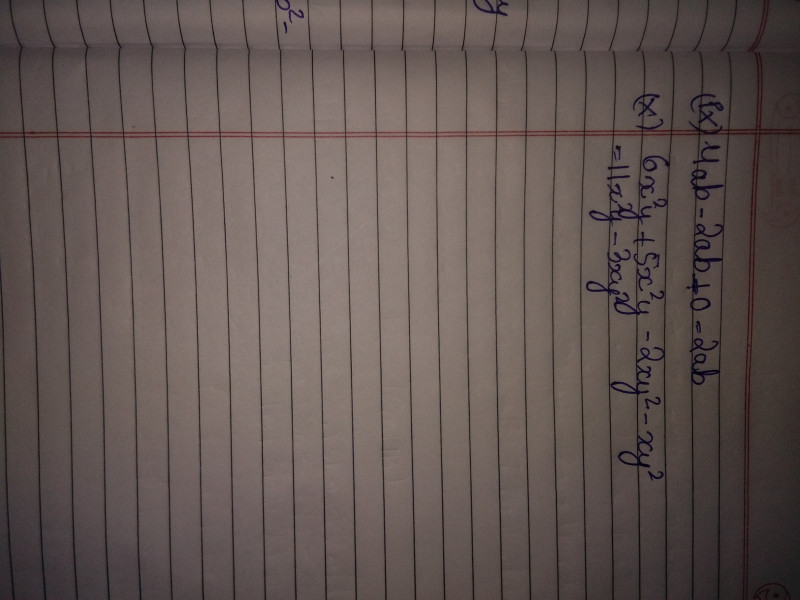 (ix) 4ab - 2ab + 0 = 2ab
(x) 6x²y + 5x²y - 2xy² - xy²
= 11x²y - 3xy²